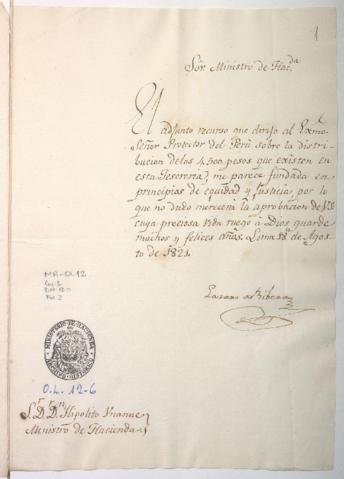 1
Sōr. Ministro de Hac.da
El adjunto recurso que dirijo al Exmo
Señor Protector del Perú sobre la distri-
bucion delos 4,300 pesos que existen en
esta Tesoreria, me parece fundada en
principios de equidad y Justicia, por lo
que no dudo merecerá la aprobacion de V.S
cuya preciosa vida ruego á Dios guarde
muchos y felices años. Lima de Agos-
to de 1821.
Lazaro de Ribera
MH-OL 12
MINISTERIO DE HACIENDA
ARCHIVO HISTORICO
O.L. 12-6
S.r D.r D.n Hipolito Unanue
Ministro de Hacienda